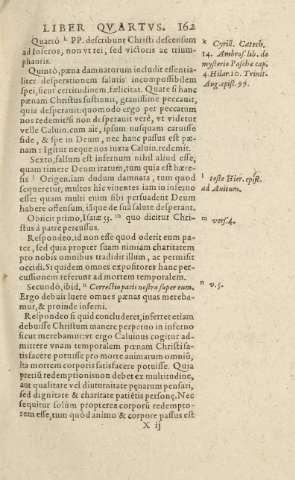 LIBER QVARTVS. 162
Quartò k PP. describunt Christi descensum
ad inferos, non vt rei, sed victoris ac trium-
phantis.
Quintò, pœna damnatorum includit essentia-
liter desperationem salutis incompossibilem
spei, sicut certitudinem fælicitat. Quare si hanc
pœnam Christus sustinuit, grauissime peccauit,
quia desperauit: quomodo ergo per peccatum
nos redemit? si non desperauit verè, vt videtur
velle Caluin. cum ait, ipsum nusquam caruisse
fide, & spe in Deum, nec hanc passus est pœ-
nam: Igitur neque nos iuxta Caluin. redemit.
Sexto, falsum est infernum nihil aliud esse,
quam timere Deum iratum, tum quia est hære-
sis l Origen. iam dudum damnata, tum quod
sequeretur, multos hic viuentes iam in inferno
esse: quam multi enim sibi persuadent Deum
habere offensum, isque de sua salute desperant.
Obiicit primo, Isaiæ 53. m quo dicitur Chri-
stus à patre percussus.
Respondeo, id non esse quod oderit eum pa-
ter, sed quia propter suam nimiam charitatem
pro nobis omnibus tradidit illum, ac permisit
occidi. Si quidem omnes expositores hanc per-
cussionem referunt ad mortem temporalem.
Secundò, ibid. n Correctio pacis nostra super eum.
Ergo debuit luere omnes pœnas quas mereba-
mur, & proinde inferni.
Respondeo si quid concluderet, inferret etiam
debuisse Christum manere perpetuo in inferno
sicut merebamur: vt ergo Caluinus cogitur ad-
mittere vnam temporalem pœnam Christi sa-
tisfacere potuisse pro morte animarum omniū,
ita mortem corporis satisfacere potuisse. Quia
pretiū redemptionis non debet ex multitudine,
aut qualitate vel diuturnitate pœnarum pensari,
sed dignitate & charitate patiētis personę. Nec
sequitur solùm propterea corporū redempto-
rem esse, tum quòd animo & corpore passus est
X ij
k Cyrill. Catech.
14. Ambros. lib. de
mysterio Pascha cap.
4. Hilar. 10. Trinit.
Aug. epist. 99.
l teste Hier. epist.
ad Auitum.
m vers. 4.
n v. 5.